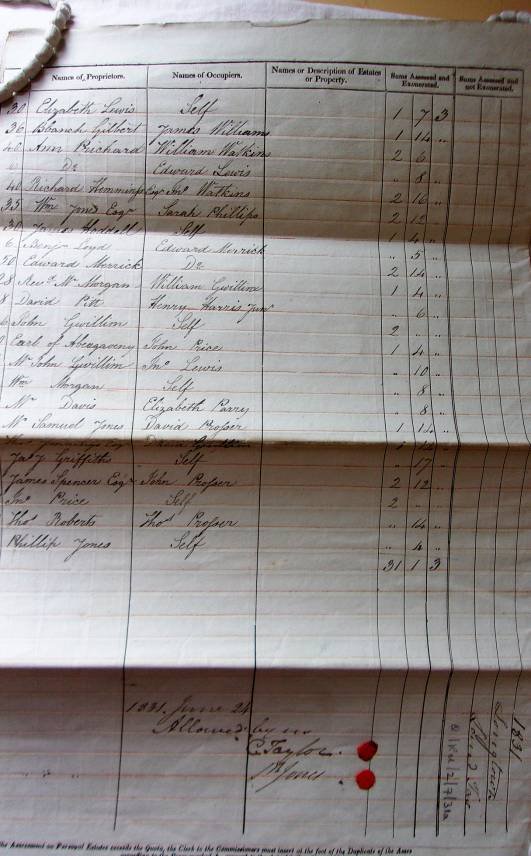 Names of Proprietors. Names of Occupiers. Names or Description of Estates or Property. Sums Assessed and Exonerated. Sums Assessed and not Exonerated.
30 Elizabeth Lewis Self 1 7 3
36 Blanch Gilbert James Williams 1 14 „
46 Ann Prichard William Watkins 2 6 „
Do Edward Lewis „ 8 „
40 Richard Hemmings Esqr Jno Watkins 2 16 „
35 Wm Jones Esqr Sarah Phillips 2 12 „
30 James Self 1 4 „
6 Benjn Loyd Edward Merrick „ 5 „
50 Edward Merrick Do 2 14 „
28 Revd Mr Morgan William Gwillim 1 4 „
8 David Pitt Henry Harris Junr „ 6 „
6 John Gwillim Self 2 „ „
Earl of Abergaveny John Price 1 4 „
Mr John Gwillim Jno Lewis „ 10 „
Wm Morgan Self „ 8 „
Mr Davis Elizabeth Parry „ 8 „
Mr Samuel Jones David Prosser 1 14 „
Griffiths Self „ 17 „
James Spencer Esqr John Prosser 2 12 „
Jno Price Self 2 „ „
Thos Roberts Thos Prosser „ 14 „
Phillip Jones Self „ 4 „
31 1 3
1831. June 24
Allowed by us
C. Taylor.
Jones
1831